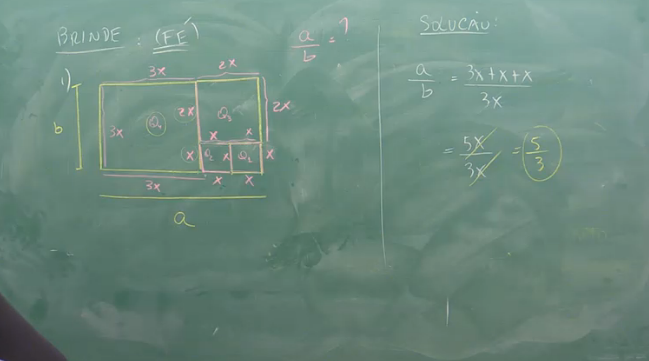 BRINDE: (FÉ)
a/b = ?
1)
3x 2x
b 3x Q₄ 2x Q₃ 2x
x x
x Q₁ x Q₂ x
3x x x
a
SOLUCÃO:
a/b = 3x+x+x/3x
= 5x/3x = 5/3